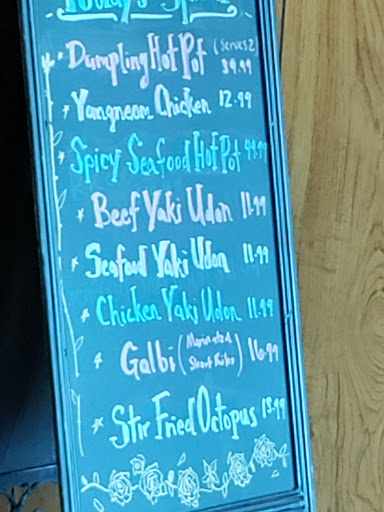 Today's Special
* Dumpling Hot Pot (Serves 2) 39.99
* Yangneom Chicken 12.99
* Spicy Seafood Hot Pot 44.99
* Beef Yaki Udon 11.99
* Seafood Yaki Udon 11.99
* Chicken Yaki Udon 11.99
* Galbi (Marinated Short Ribs) 16.99
* Stir Fried Octopus 13.99